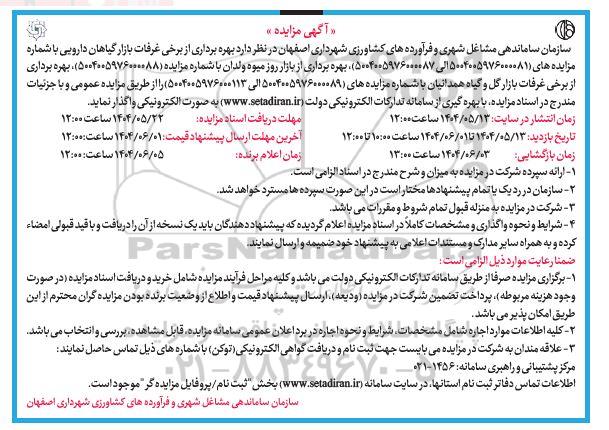 « آگهی مزایده »
سازمان ساماندهی مشاغل شهری و فرآورده های کشاورزی شهرداری اصفهان در نظر دارد بهره برداری از برخی غرفات بازار گیاهان دارویی با شماره
مزایده های (۵۰۰۴۰۰۵۹۷۶۰۰۰۰۸۱ الی ۵۰۰۴۰۰۵۹۷۶۰۰۰۰۸۷)، بهره برداری از بازار روز میوه ولدان با شماره مزایده (۵۰۰۴۰۰۵۹۷۶۰۰۰۰۸۸)، بهره برداری
از برخی غرفات بازار گل و گیاه همدانیان با شماره مزایده های (۵۰۰۴۰۰۵۹۷۶۰۰۰۰۸۹ الی ۵۰۰۴۰۰۵۹۷۶۰۰۰۱۱۳) را از طریق مزایده عمومی و با جزییات
مندرج در اسناد مزایده، با بهره گیری از سامانه تدارکات الکترونیکی دولت (www.setadiran.ir) به صورت الکترونیکی واگذار نماید.
زمان انتشار در سایت: ۱۴۰۴/۰۵/۱۳ ساعت ۱۲:۰۰ مهلت دریافت اسناد مزایده: ۱۴۰۴/۰۵/۲۲ ساعت ۱۲:۰۰
تاریخ بازدید: ۱۴۰۴/۰۵/۱۳ تا ۱۴۰۴/۰۶/۰۱ ساعت ۱۰:۰۰ تا ۱۲:۰۰ آخرین مهلت ارسال پیشنهاد قیمت: ۱۴۰۴/۰۶/۰۱ ساعت ۱۲:۰۰
زمان بازگشایی: ۱۴۰۴/۰۶/۰۳ ساعت ۱۳:۰۰ زمان اعلام برنده: ۱۴۰۴/۰۶/۰۵ ساعت ۱۲:۰۰
۱- ارائه سپرده شرکت در مزایده به میزان و شرح مندرج در اسناد الزامی است.
۲- سازمان در رد یک یا تمام پیشنهادها مختار است در این صورت سپرده ها مسترد خواهد شد.
۳- شرکت در مزایده به منزله قبول تمام شروط و مقررات می باشد.
۴- شرایط و نحوه واگذاری و مشخصات کاملاً در اسناد مزایده اعلام گردیده که پیشنهاد دهندگان باید یک نسخه از آن را دریافت و با قید قبولی امضاء
کرده و به همراه سایر مدارک و مستندات اعلامی به پیشنهاد خود ضمیمه و ارسال نمایند.
ضمنا رعایت موارد ذیل الزامی است:
۱- برگزاری مزایده صرفا از طریق سامانه تدارکات الکترونیکی دولت می باشد و کلیه مراحل فرآیند مزایده شامل خرید و دریافت اسناد مزایده (در صورت
وجود هزینه مربوطه)، پرداخت تضمین شرکت در مزایده (ودیعه)، ارسال پیشنهاد قیمت و اطلاع از وضعیت برنده بودن مزایده گران محترم از این
طریق امکان پذیر می باشد.
۲- کلیه اطلاعات موارد اجاره شامل مشخصات، شرایط و نحوه اجاره در برد اعلان عمومی سامانه مزایده، قابل مشاهده، بررسی و انتخاب می باشد.
۳- علاقه مندان به شرکت در مزایده می بایست جهت ثبت نام و دریافت گواهی الکترونیکی (توکن) با شماره های ذیل تماس حاصل نمایند:
مرکز پشتیبانی و راهبری سامانه: ۱۴۵۶-۰۲۱
اطلاعات تماس دفاتر ثبت نام استانها، در سایت سامانه (www.setadiran.ir) بخش "ثبت نام/پروفایل مزایده گر" موجود است.
سازمان ساماندهی مشاغل شهری و فرآورده های کشاورزی شهرداری اصفهان
ParsNamadData
۰۲۱-۸۸۳۴۹۶۷۰-۵